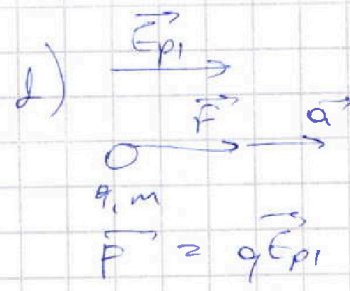 d)
E⃗p1
F⃗ a⃗
q, m
F⃗ = qE⃗p1